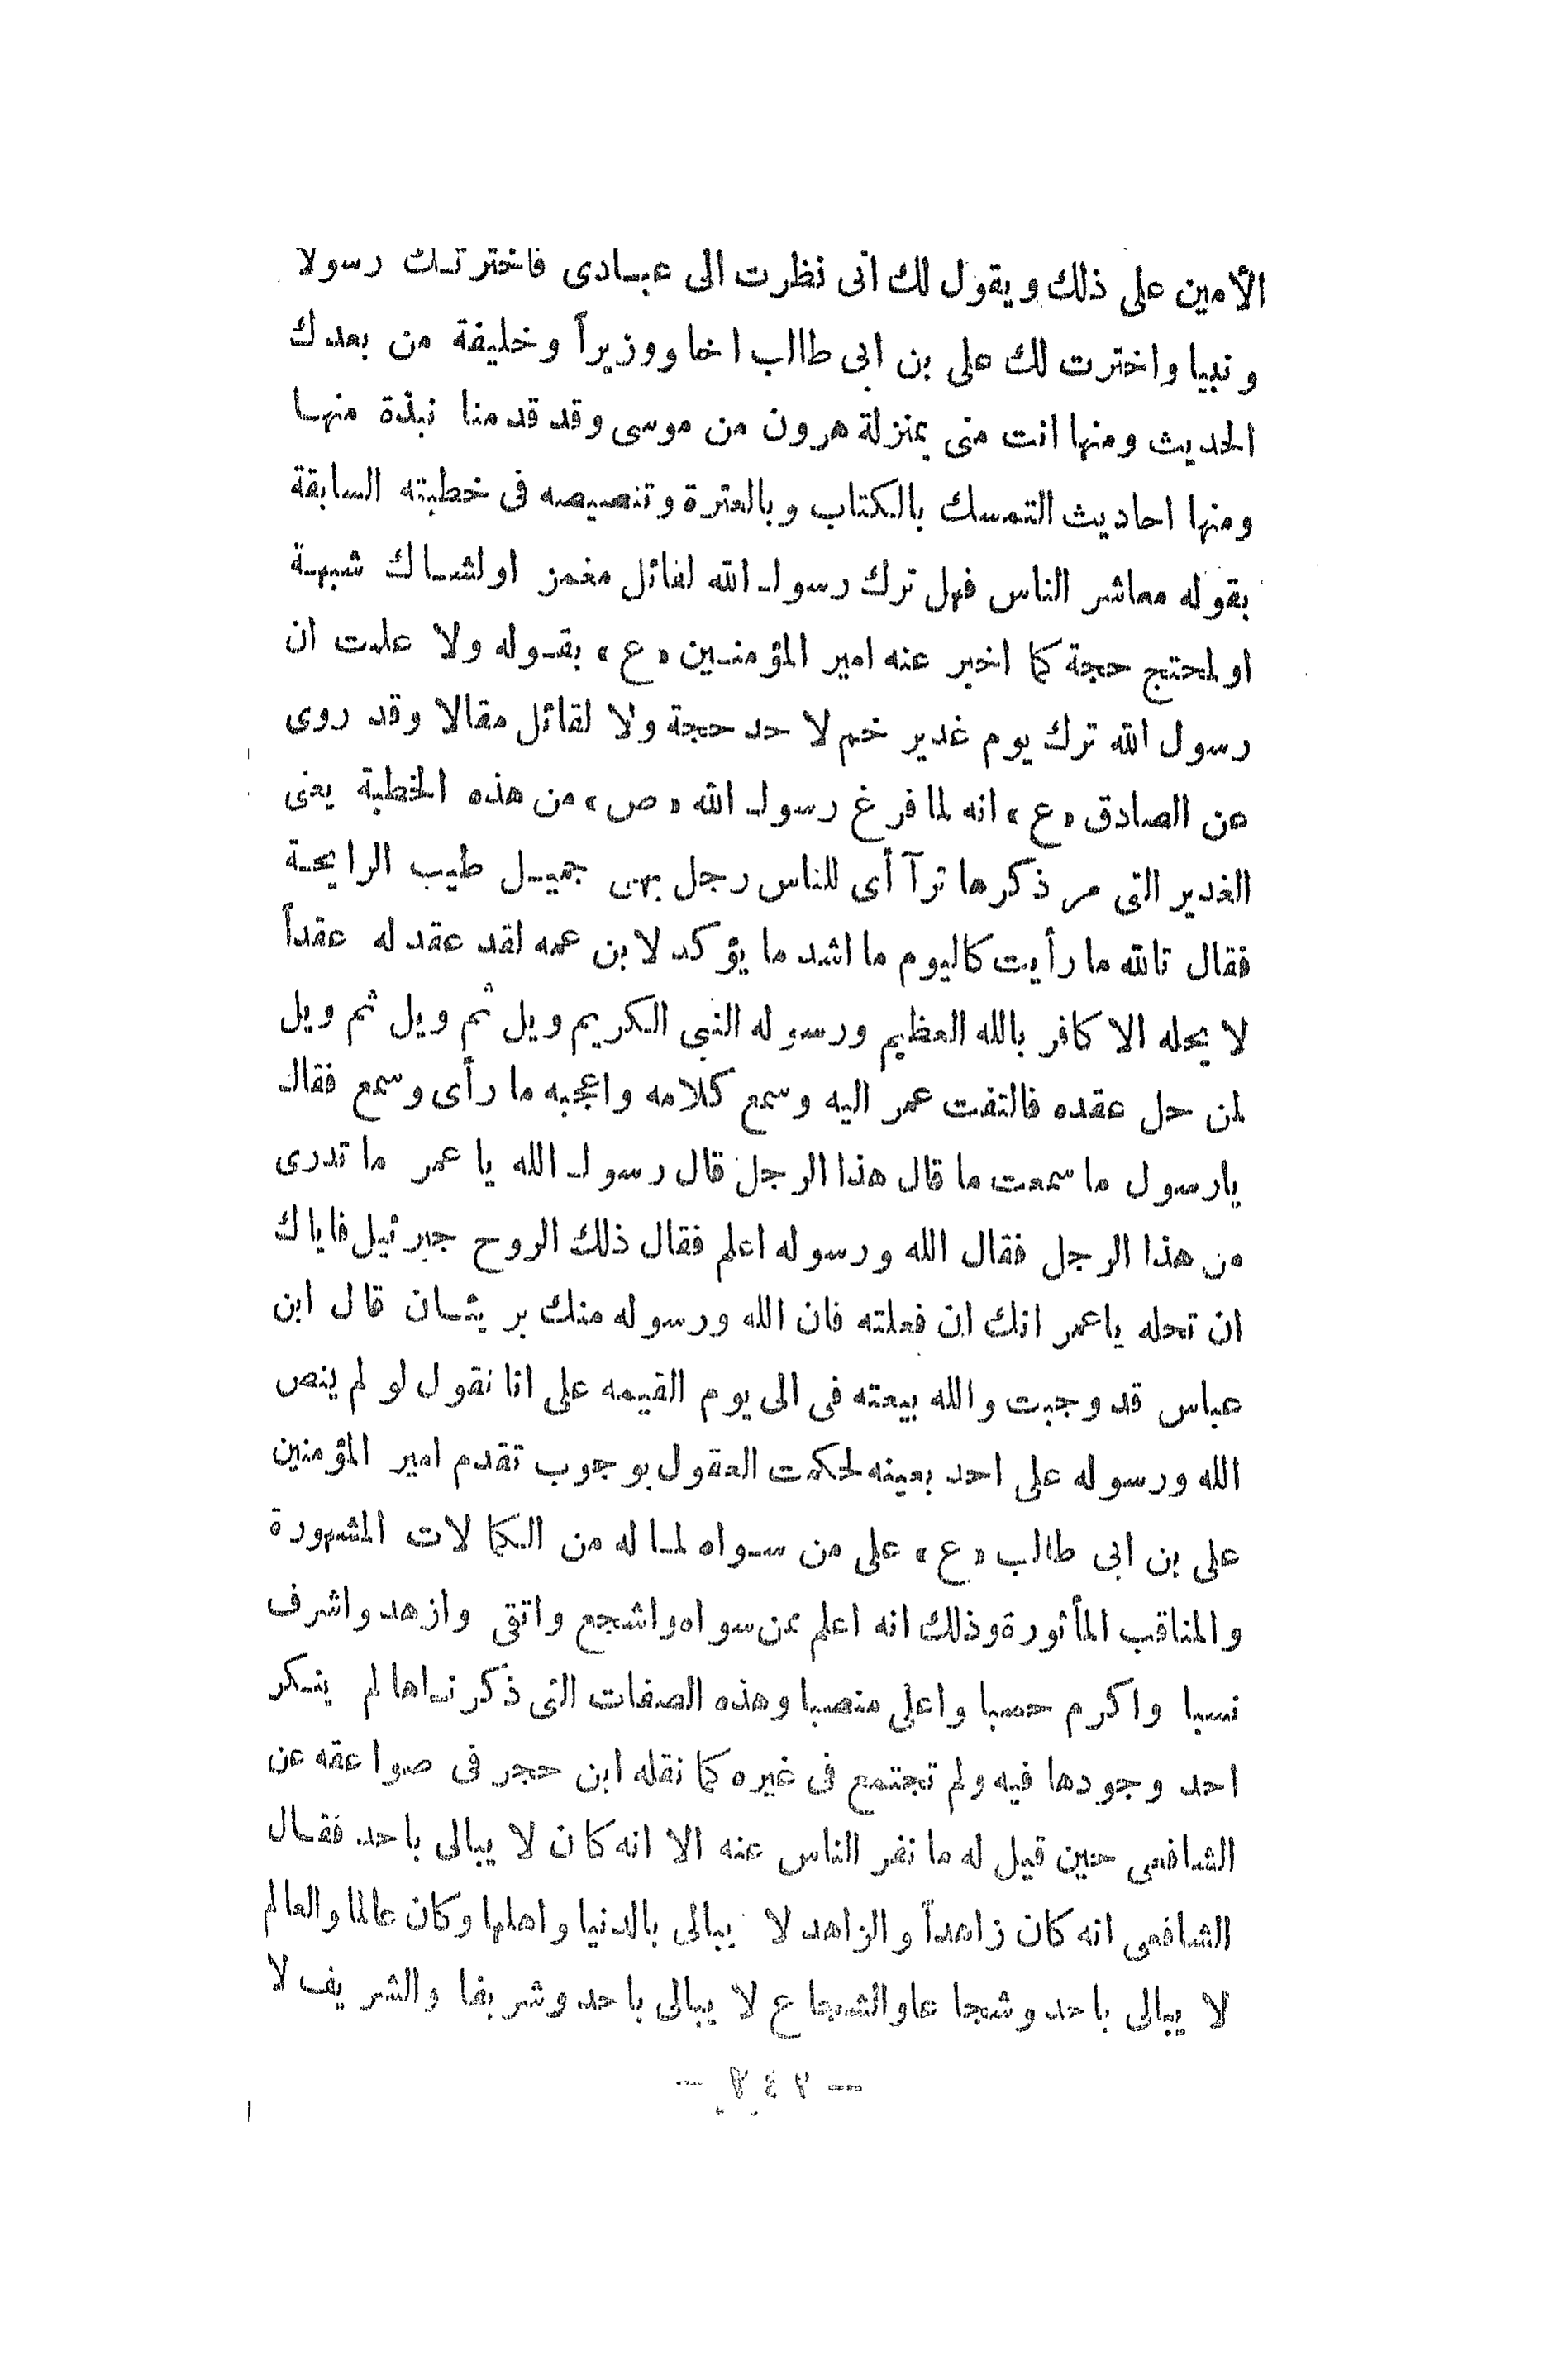 الأمين على ذلك ويقول لك انى نظرت الى عبادى فاخترتك رسولا
ونبيا واخترت لك على بن ابى طالب اخا ووزيراً وخليفة من بعدك
الحديث ومنها انت منى بمنزلة هرون من موسى وقد قدمنا نبذة منها
ومنها احاديث التمسك بالكتاب وبالعترة وتنصيصه فى خطبته السابقة
بقوله معاشر الناس فهل ترك رسول الله لقائل مغمز او لشاك شبهة
او لمحتج حجة كما اخبر عنه امير المؤمنين «ع» بقوله ولا علمت ان
رسول الله ترك يوم غدير خم لاحد حجة ولا لقائل مقالا وقد روى
عن الصادق «ع» انه لما فرغ رسول الله «ص» من هذه الخطبة يعنى
الغدير التى مر ذكرها ترآأى للناس رجل بهى جميل طيب الرايحة
فقال تالله ما رأيت كاليوم ما اشد ما يؤكد لابن عمه لقد عقد له عقداً
لا يحله الا كافر بالله العظيم ورسوله النبى الكريم ويل ثم ويل ثم ويل
لمن حل عقده فالتفت عمر اليه وسمع كلامه واعجبه ما رأى وسمع فقال
يارسول ما سمعت ما قال هذا الرجل قال رسول الله يا عمر ما تدرى
من هذا الرجل فقال الله ورسوله اعلم فقال ذلك الروح جبرئيل فاياك
ان تحله ياعمر انك ان فعلته فان الله ورسوله منك بريئان قال ابن
عباس قد وجبت والله بيعته فى الى يوم القيمه على انا نقول لو لم ينص
الله ورسوله على احد بعينه لحكمت العقول بوجوب تقدم امير المؤمنين
على بن ابى طالب «ع» على من سواه لما له من الكمالات المشهورة
والمناقب المأثورة وذلك انه اعلم ممن سواه واشجع واتقى وازهد واشرف
نسبا واكرم حسبا واعلى منصبا وهذه الصفات التى ذكرناها لم ينكر
احد وجودها فيه ولم تجتمع فى غيره كما نقله ابن حجر فى صواعقه عن
الشافعى حين قيل له ما نفر الناس عنه الا انه كان لا يبالى باحد فقال
الشافعى انه كان زاهداً والزاهد لا يبالى بالدنيا واهلها وكان عالما والعالم
لا يبالى باحد وشجاعا والشجاع لا يبالى باحد وشريفا والشريف لا